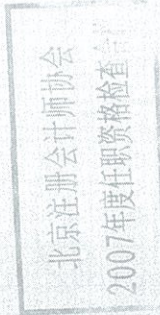 北京注册会计师协会
2007年度任职资格检查